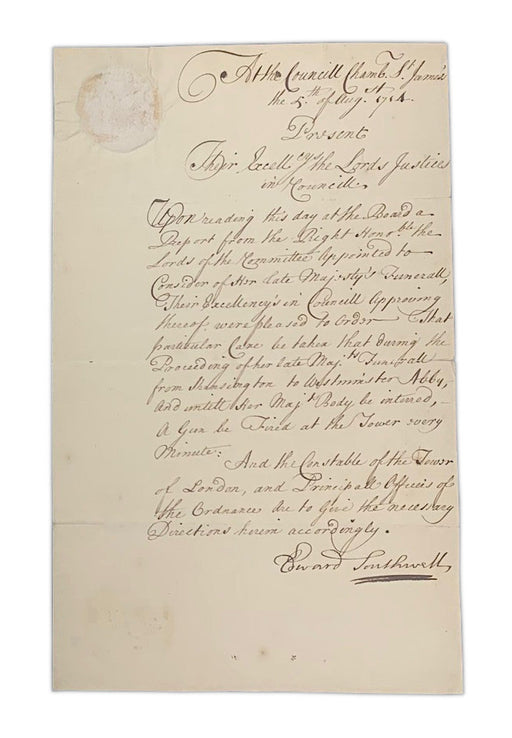 At the Councill Chamb.r St. James's
the 5.th of Aug.st 1714.
Present
Their Excell.cys the Lords Justices
in Councill.
Upon reading this day at the Board a
Report from the Right Hono.ble the
Lords of the Committee Appointed to
Consider of Her late Majesty's Funerall,
Their Excellency's in Councill Approving
thereof, were pleased to Order That
particular Care be taken that during the
Proceeding of her late Maj.ts Funerall
from Kensington to Westminster Abby,
and untill Her Maj.ts Body, be interred,
A Gun be Fired at the Tower every
Minute: And the Constable of the Tower
of London, and Principall Officers of
the Ordnance are to Give the necessary
Directions herein accordingly.
Edward Southwell